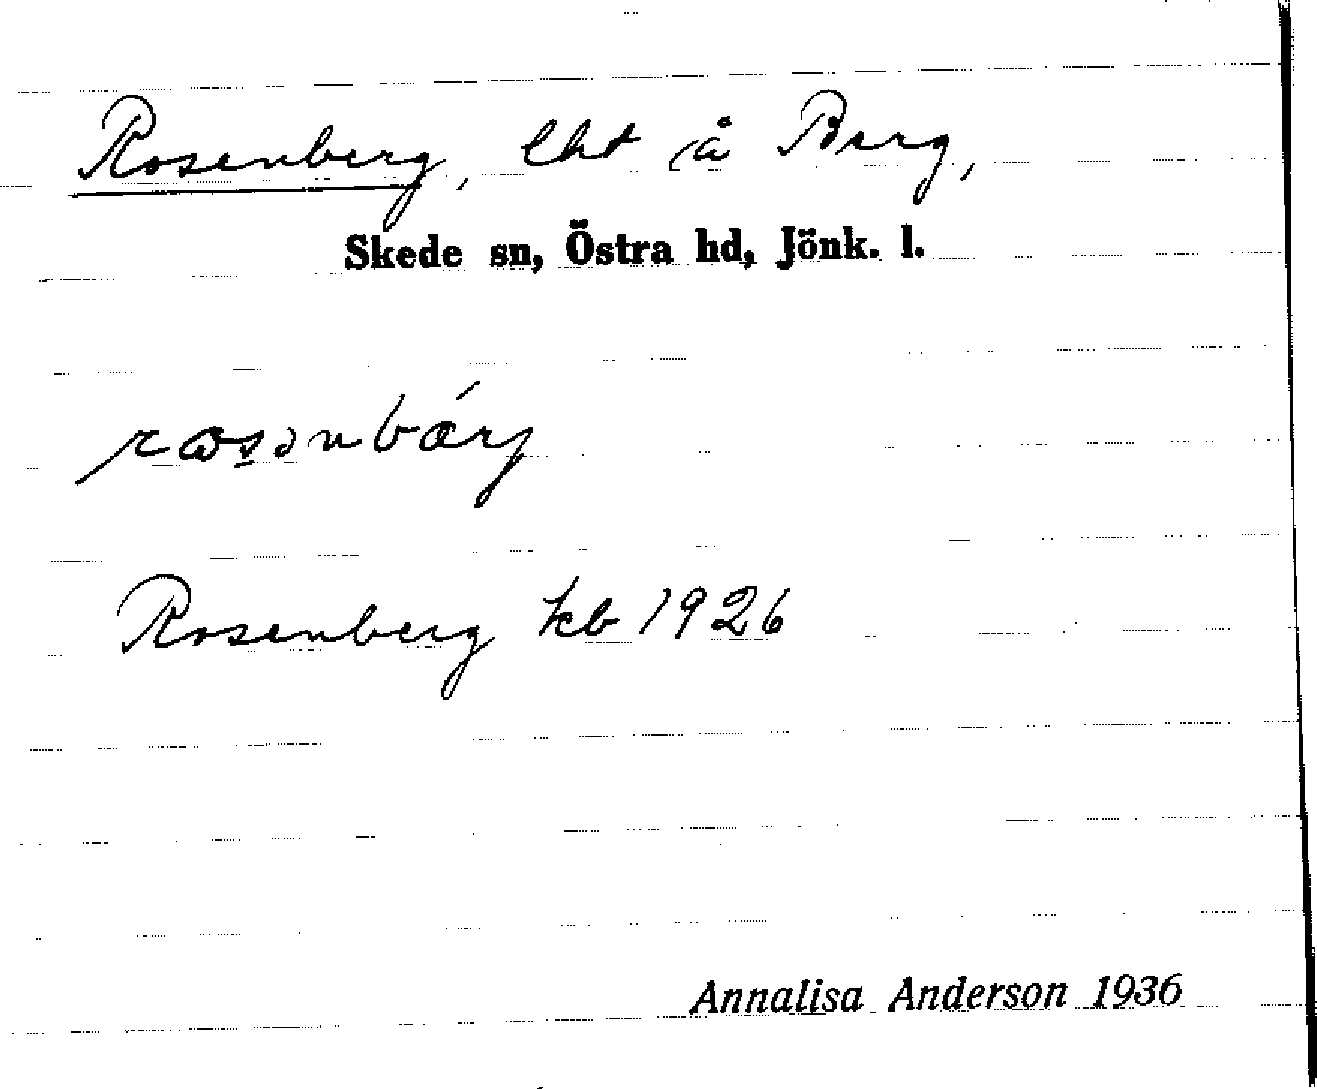 Rosenberg, lht å Berg,
Skede sn, Östra hd, Jönk. l.
Rosenberg kb 1926
Annalisa Anderson 1936